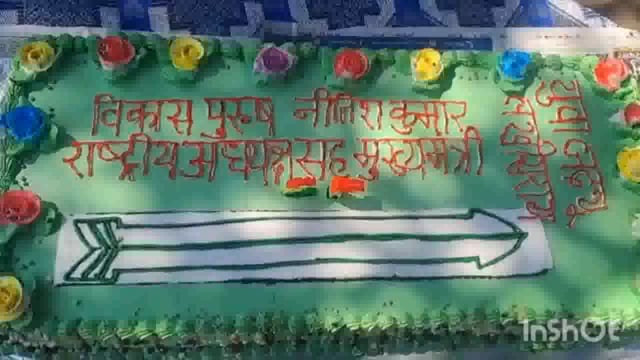 विकास पुरुष नीतिश कुमार
राष्ट्रीय अध्यक्ष सह मुख्यमंत्री
युवा जदयू
लखीसराय
InShOt